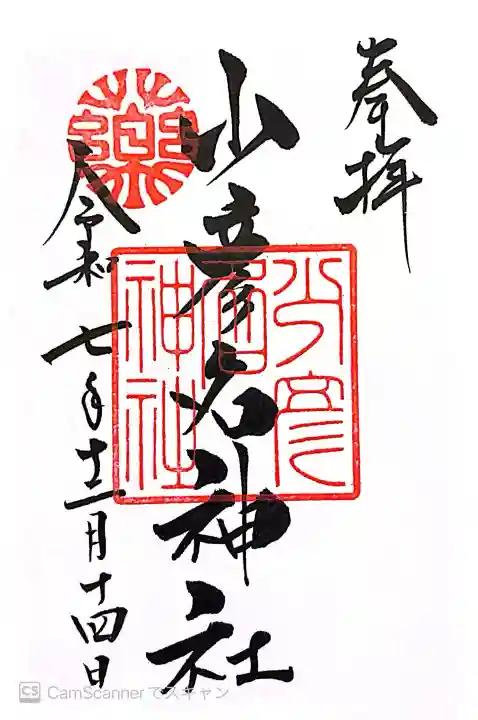 奉拝
少彦名神社
令和七年十二月十四日
薬
少彦名神社
CS CamScannerでスキャン